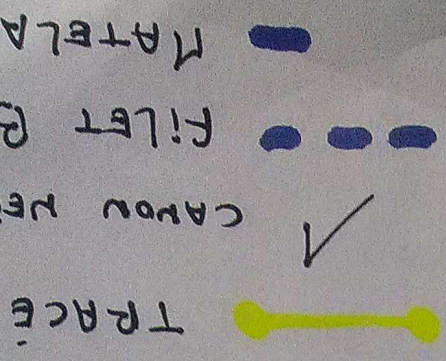 TRACÉ
CANON NE
FILET
MATELA